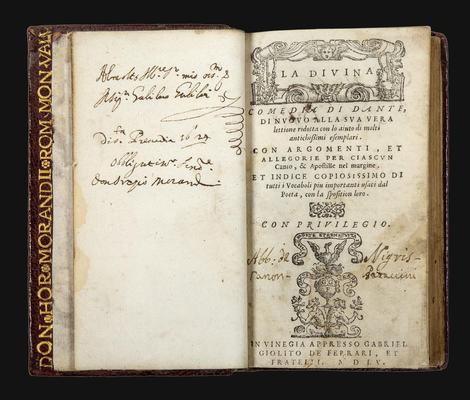 DON HOR MORANDII ROM MON
mio
Galileo Galilei
Don Oratio Morandi
LA DIVINA
COMEDIA DI DANTE,
DI NVOVO ALLA SVA VERA
lettione ridotta con lo aiuto di molti
antichissimi esemplari.
CON ARGOMENTI, ET
ALLEGORIE PER CIASCVN
Canto, & Apostille nel margine.
ET INDICE COPIOSISSIMO DI
tutti i Vocaboli piu importanti usati dal
Poeta, con la sposition loro.
CON PRIVILEGIO.
Abb. de Nigris
Canon
IN VINEGIA APPRESSO GABRIEL
GIOLITO DE FERRARI, ET
FRATELLI. M D LV.